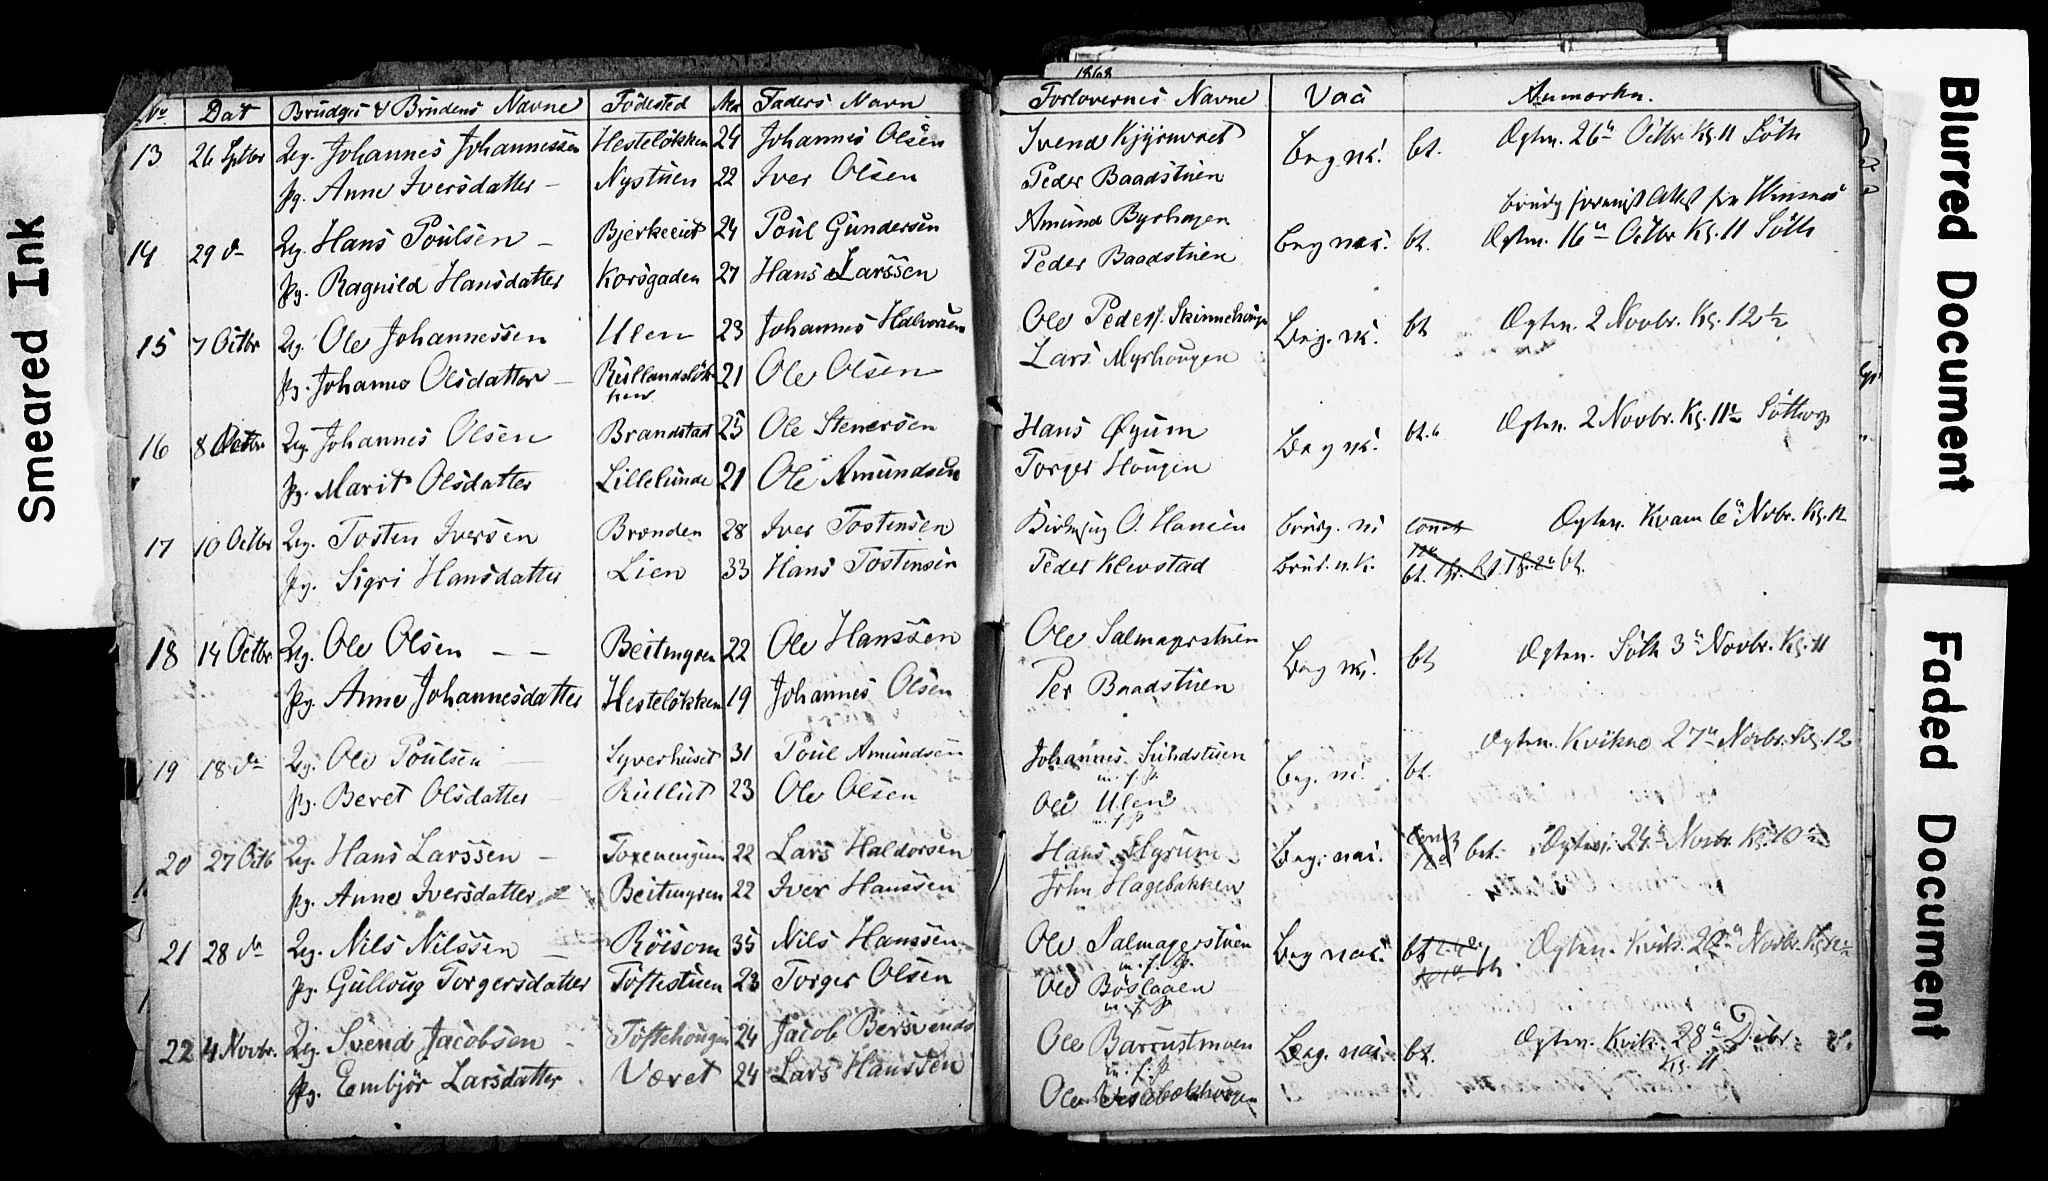 Smeared Ink
Blurred Document
Faded Document
1868
No Dat Brudgs & Brudens Navne Födested Alder Faders Navn Forlovernes Navne Vaa Anmærkn.
13 26 Sptbr Ug. Johannes Johannessen Hestelökken 24 Johannes Olsen Svend Beg ns. bt. Ægten. 26de Octbr Kl. 11 Söth
Pg. Anne Iversdatter – Nystuen 22 Iver Olsen Peder Baadstuen
14 29 do Ug. Hans Poulsen – 24 Poul Gundersen Amund Byrhagen Beg nai. bt. Ægten. 16de Octbr Kl. 11 Söth
Pg. Ragnild Hansdatter Korsgaden 27 Hans Larssen Peder Baadstuen
15 7 Octbr Ug. Ole Johannessen Ulen 23 Johannes Halvorsen Ole Peders. Beg. ns. bt Ægten. 2 Novbr. Kl. 12½
Pg. Johanne Olsdatter – 21 Ole Olsen Lars Myrhougen
16 8 Octbr Ug. Johannes Olsen Brandstad 25 Ole Stenersen Hans Öyum Beg ns. bt. Ægten. 2 Novbr. Kl. 11
Pg. Marit Olsdatter Lillelunde 21 Ole Amundsen Torger Hougen
17 10 Octbr Ug. Tosten Iversen Brenden 28 Iver Tostensen O. Hansen Brudg. ns Ægten. Kvam 6te Novbr. Kl. 12
Pg. Sigri Hansdatter Lien 33 Hans Tostensen Peder Klevstad Brud. n. k. bt.
18 14 Octbr Ug. Ole Olsen – – Beitengren 22 Ole Hanssen Ole Salmagerstuen Beg ns. bt Ægten. Söth 3de Novbr. Kl. 11
Pg. Anne Johannesdatter Hestelökken 19 Johannes Olsen Per Baadstuen
19 18 do Ug. Ole Poulsen Syverhuset 31 Poul Amundsen Johannes Sundstuen Beg. ns. bt. Ægten. Kvikne 27de Novbr. Kl. 12
m. f. P.
Pg. Beret Olsdatter – Rullut 23 Ole Olsen Ole Ulen
m. f. P.
20 27 Octb Ug. Hans Larssen – 22 Lars Haldorsen Hans Beg. nai. bet. Ægten. 24de Novbr. Kl. 10
Pg. Anne Iversdatter – Beitengren 22 Iver Hanssen John Hagebakken
21 28 do Ug. Nils Nilssen – Röisom 35 Nils Hanssen Ole Salmagerstuen Beg nai. bt Ægten. Kvik.
m. f. P.
Pg. Gulloug Torgersdatter Toftestuen 23 Torger Olsen Ole Böslaaen
m. f. P.
22 4 Novbr. Ug. Svend Jacobsen – Toftehougen 24 Jacob Bersvends Ole Beg. nai. bt. Ægten. Kvik. 28de Dcbr
m. f. P. Kl. 11
Pg. Embjör Larsdatter Været 24 Lars Hanssen Ole